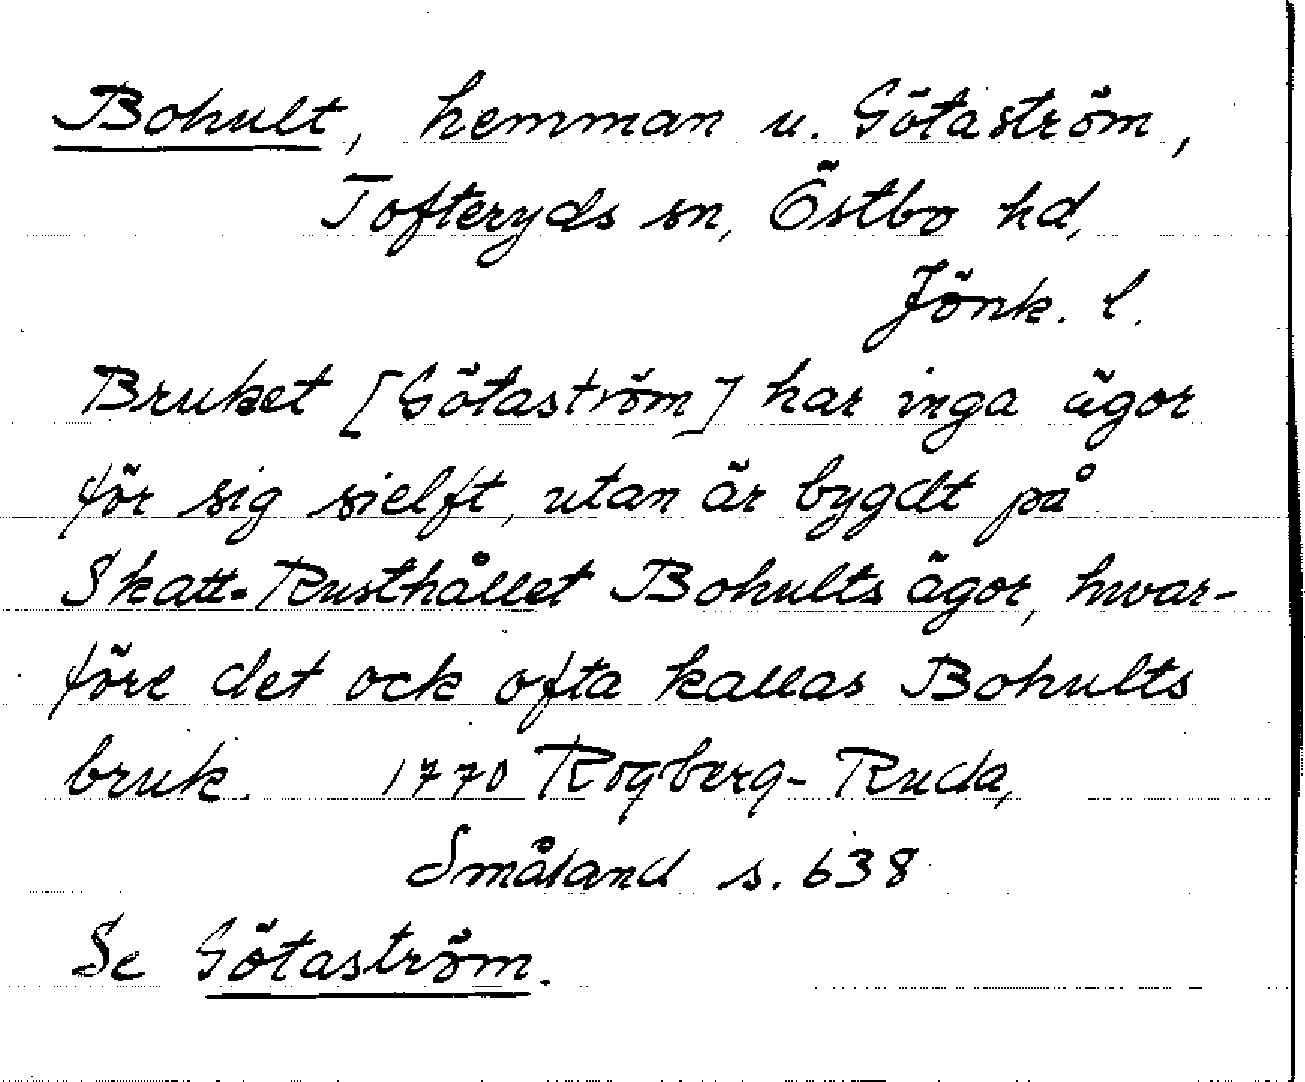 Bohult, hemman u. Götaström,
Tofteryds sn, Östbo hd,
Jönk. l.
Bruket [Götaström] har inga ägor
för sig sielft, utan är bygdt på
Skatt-Rusthållet Bohults ägor, hvar-
före det ock ofta kallas Bohults
bruk. 1770 Rogberg-Ruda,
Småland s. 638
Se Götaström.